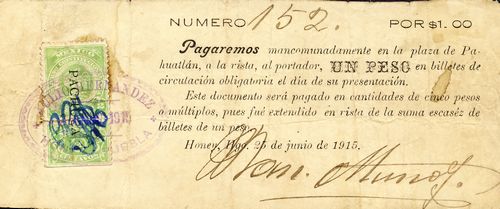 NUMERO 152. POR $1.00
Pagaremos mancomunadamente en la plaza de Pa-
huatlán, a la vista, al portador, UN PESO en billetes de
circulación obligatoria el dia de su presentación.
Este documento será pagado en cantidades de cinco pesos
o múltiplos, pues fué extendido en vista de la suma escaséz de
billetes de un peso.
Honey, Hgo. 25 de junio de 1915.
MEXICO
PACHUCA
1915